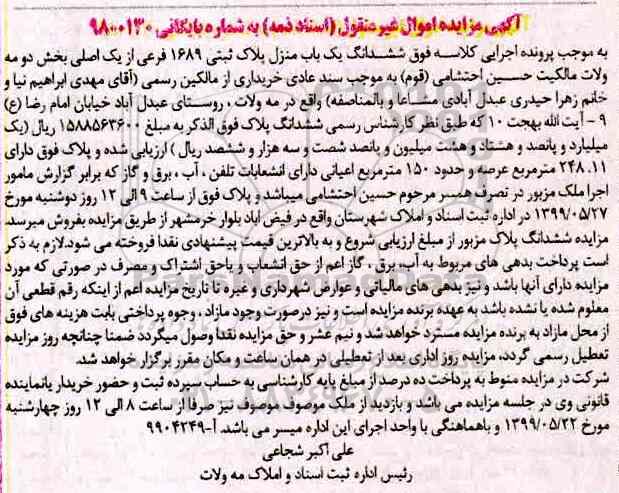 آگهی مزایده اموال غیر منقول (اسناد ذمه) به شماره بایگانی ۹۸۰۰۱۳۰
به موجب پرونده اجرایی کلاسه فوق ششدانگ یک باب منزل پلاک ثبتی ۱۶۸۹ فرعی از یک اصلی بخش دو مه
ولات مالکیت حسین احتشامی (قوم) به موجب سند عادی خریداری از مالکین رسمی (آقای مهدی ابراهیم نیا و
خانم زهرا حیدری عبدل آبادی مشاعا و بالمناصفه) واقع در مه ولات ، روستای عبدل آباد خیابان امام رضا (ع)
۹ - آیت الله بهجت ۱۰ که طبق نظر کارشناس رسمی ششدانگ پلاک فوق الذکر به مبلغ ۱۵۸۸۵۶۳۶۰۰ ریال (یک
میلیارد و پانصد و هشتاد و هشت میلیون و پانصد شصت و سه هزار و ششصد ریال ) ارزیابی شده و پلاک فوق دارای
۲۴۸.۱۱ مترمربع عرصه و حدود ۱۵۰ مترمربع اعیانی دارای انشعابات تلفن ، آب ، برق و گاز که برابر گزارش مامور
اجرا ملک مزبور در تصرف همسر مرحوم حسین احتشامی میباشد و پلاک فوق از ساعت ۹ الی ۱۲ روز دوشنبه مورخ
۱۳۹۹/۰۵/۲۷ در اداره ثبت اسناد و املاک شهرستان واقع در فیض آباد بلوار خرمشهر از طریق مزایده بفروش میرسد.
مزایده ششدانگ پلاک مزبور از مبلغ ارزیابی شروع و به بالاترین قیمت پیشنهادی نقدا فروخته می شود.لازم به ذکر
است پرداخت بدهی های مربوط به آب، برق ، گاز اعم از حق انشعاب و یاحق اشتراک و مصرف در صورتی که مورد
مزایده دارای آنها باشد و نیز بدهی های مالیاتی و عوارض شهرداری و غیره تا تاریخ مزایده اعم از اینکه رقم قطعی آن
معلوم شده یا نشده باشد به عهده برنده مزایده است و نیز درصورت وجود مازاد ، وجوه پرداختی بابت هزینه های فوق
از محل مازاد به برنده مزایده مسترد خواهد شد و نیم عشر و حق مزایده نقدا وصول میگردد ضمنا چنانچه روز مزایده
تعطیل رسمی گردد، مزایده روز اداری بعد از تعطیلی در همان ساعت و مکان مقرر برگزار خواهد شد.
شرکت در مزایده منوط به پرداخت ده درصد از مبلغ پایه کارشناسی به حساب سپرده ثبت و حضور خریدار یانماینده
قانونی وی در جلسه مزایده می باشد و بازدید از ملک موصوف موصوف نیز صرفا از ساعت ۸ الی ۱۲ روز چهارشنبه
مورخ ۱۳۹۹/۰۵/۲۲ و باهماهنگی با واحد اجرای این اداره میسر می باشد. آ-۹۹۰۴۲۴۹
علی اکبر شجاعی
رئیس اداره ثبت اسناد و املاک مه ولات